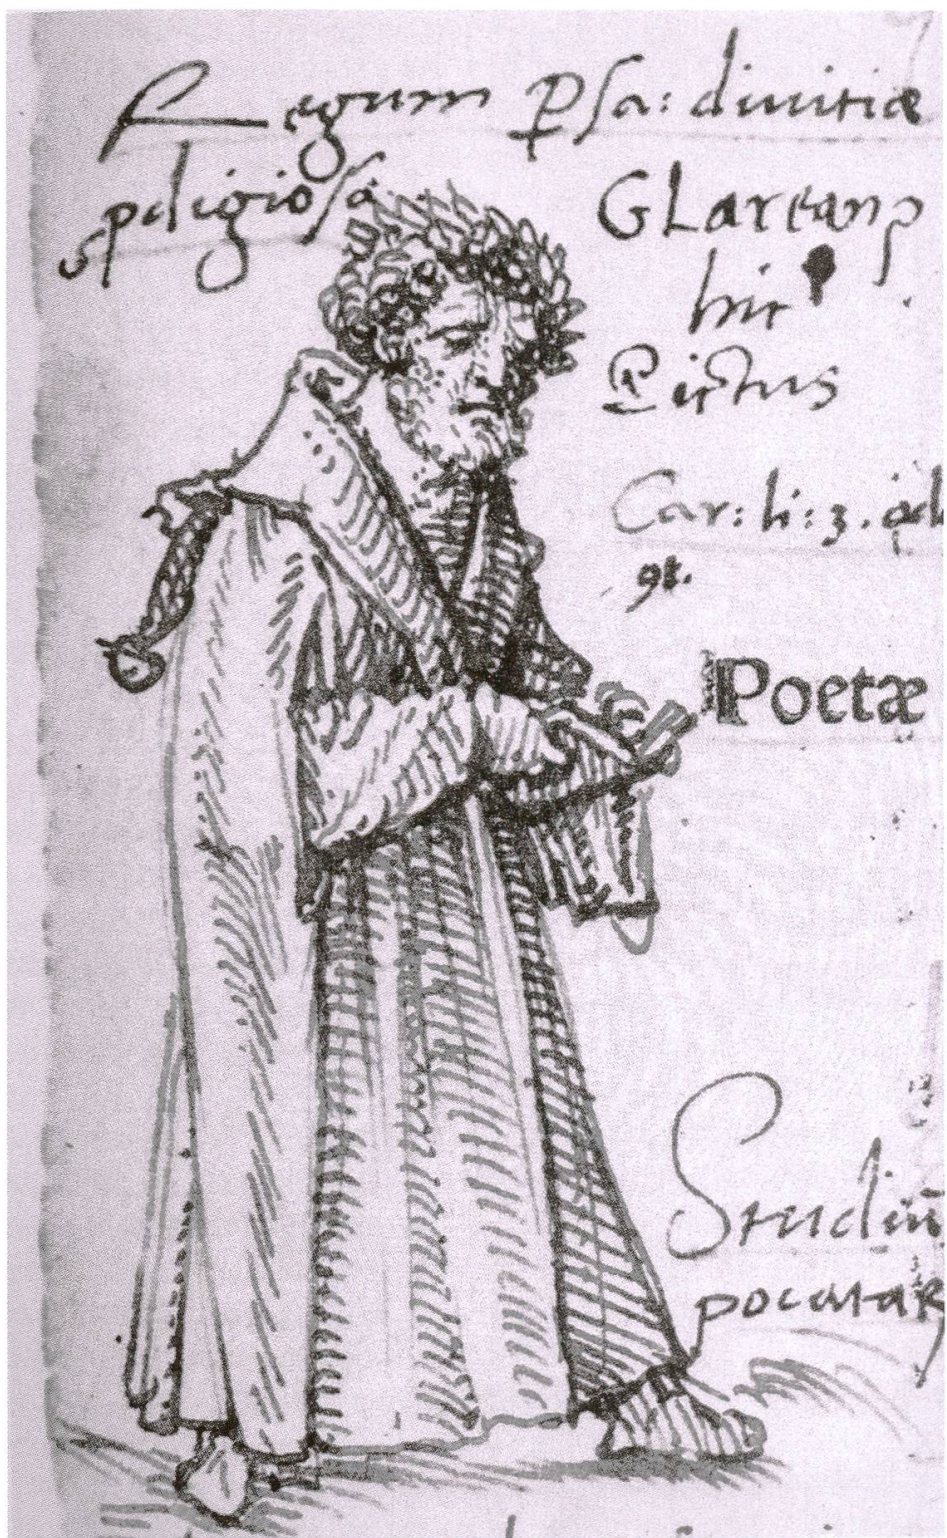 Regum Psa: diuitiæ
pdigiosæ
GLareanꝰ
hic
Pictus
Car: li: 3.
Poetæ
Studiū